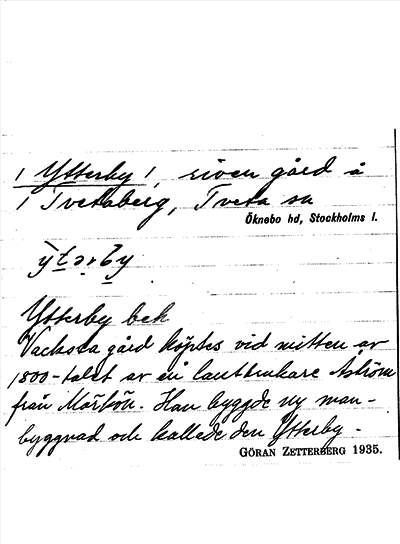 / Ytterby /, riven gård å
/ Tvetaberg, Tveta sn
Öknebo hd, Stockholms l.
Ytterby bek
Vacksta gård köptes vid mitten av
1800-talet av en lantbrukare Åström
från Mörkön. Han byggde ny man-
byggnad och kallade den Ytterby.
GÖRAN ZETTERBERG 1935.